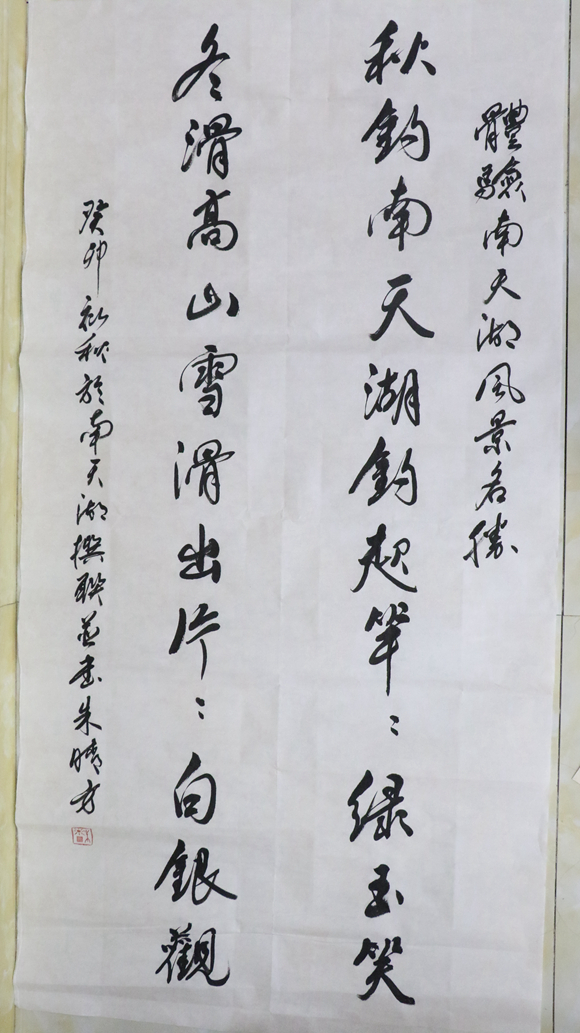 體驗南天湖風景名勝
秋釣南天湖釣起竿〻綠玉笑
冬滑高山雪滑出片〻白銀觀
癸卯初秋於南天湖撰聯並書朱晴方